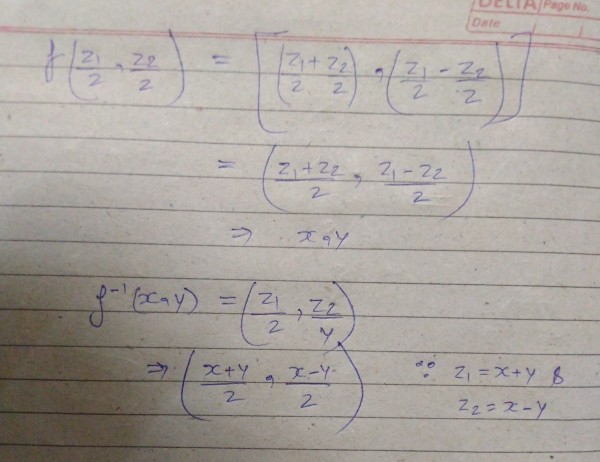 DELTA Page No.
Date
f(z₁/2, z₂/2) = [(z₁/2 + z₂/2), (z₁/2 - z₂/2)]
= (z₁+z₂/2, z₁-z₂/2)
⇒ x, y
f⁻¹(x, y) = (z₁/2, z₂/y)
⇒ (x+y/2, x-y/2) ∵ z₁ = x+y &
z₂ = x-y